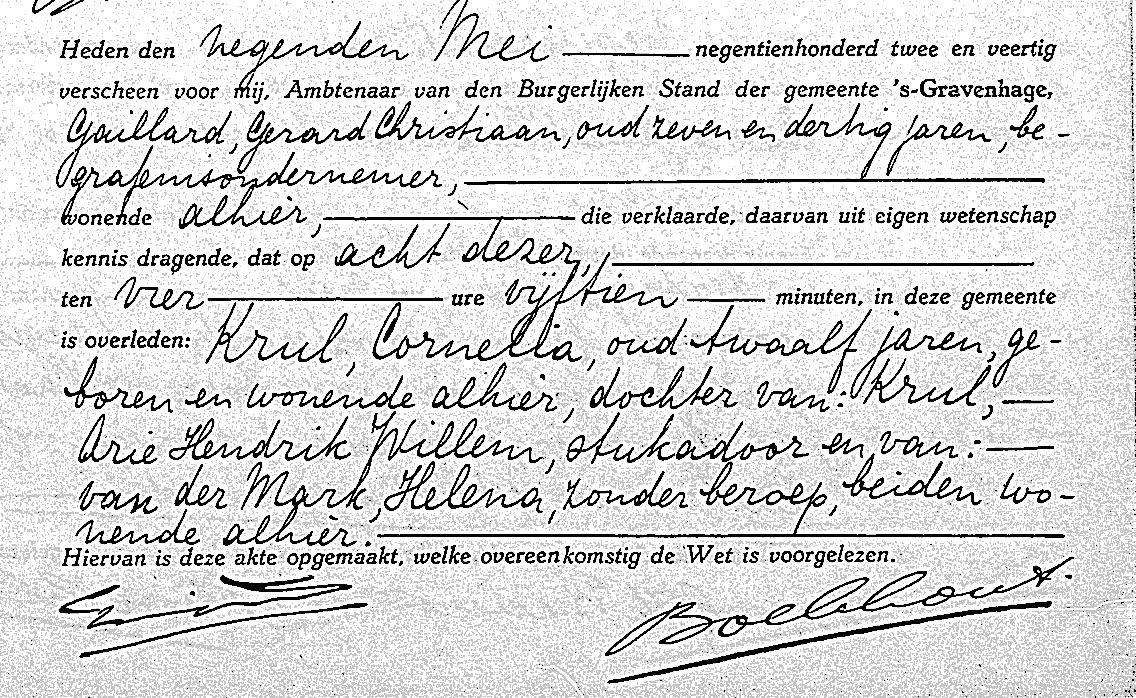 Heden den negenden Mei negentienhonderd twee en veertig
verscheen voor mij, Ambtenaar van den Burgerlijken Stand der gemeente 's-Gravenhage,
Gaillard, Gerard Christiaan, oud zeven en dertig jaren, be-
grafenisondernemer,
wonende alhier, die verklaarde, daarvan uit eigen wetenschap
kennis dragende, dat op acht dezer,
ten vier ure vijftien minuten, in deze gemeente
is overleden: Krul, Cornelia, oud twaalf jaren, ge-
boren en wonende alhier, dochter van: Krul,
Arie Hendrik Willem, stukadoor en van:
van der Mark, Helena, zonder beroep, beiden wo-
nende alhier.
Hiervan is deze akte opgemaakt, welke overeenkomstig de Wet is voorgelezen.